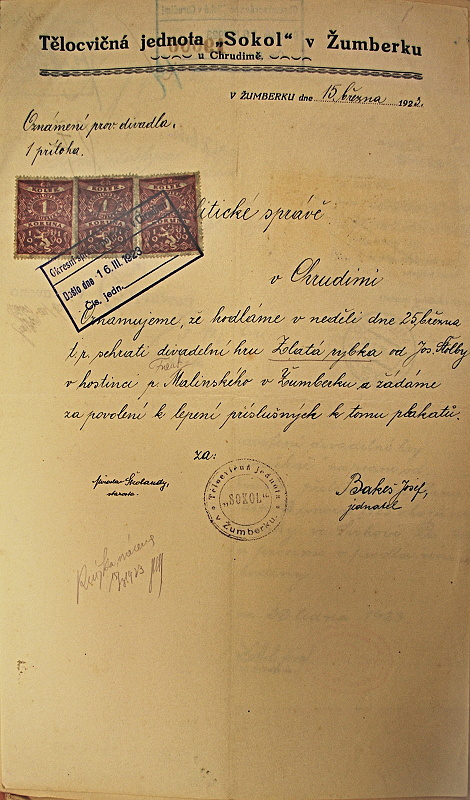 Tělocvičná jednota „Sokol“ v Žumberku
u Chrudimě.
V ŽUMBERKU dne 15. března 1923.
Oznámení prov. divadla.
1 příloha.
KOLEK KOLEK KOLEK
1 1 1
KORUNA KORUNA KORUNA
litické správě
v Chrudimi
Okresní
Došlo dne 16. III. 1923
Čís. jedn.
Oznamujeme, že hodláme v neděli dne 25. března
t. r. sehráti divadelní hru Zlatá rybka od Jos. Štolby
v hostinci p. Malinského v Žumberku a žádáme
za povolení k lepení příslušných k tomu plakátů.
za:
Tělocvičná jednota
„SOKOL“
v Žumberku.
Miroslav
starosta.
Bakeš Josef,
jednatel